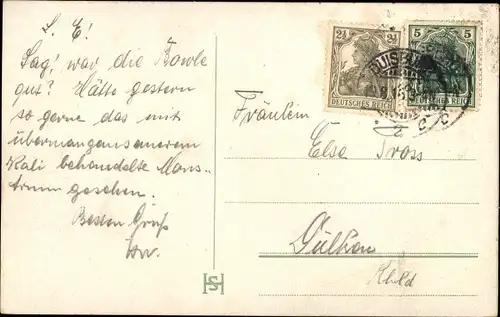 L. E!
Sag', war die Bowle
gut? Hätte gestern
so gerne das mit
übermangansaurem
Kali behandelte Mons-
trum gesehen.
Besten Gruß
2½ 2½
DEUTSCHES REICH
5 5
DEUTSCHES REICH
DUISB
Fräulein
Else Tross
Dülken
Rhld
HS